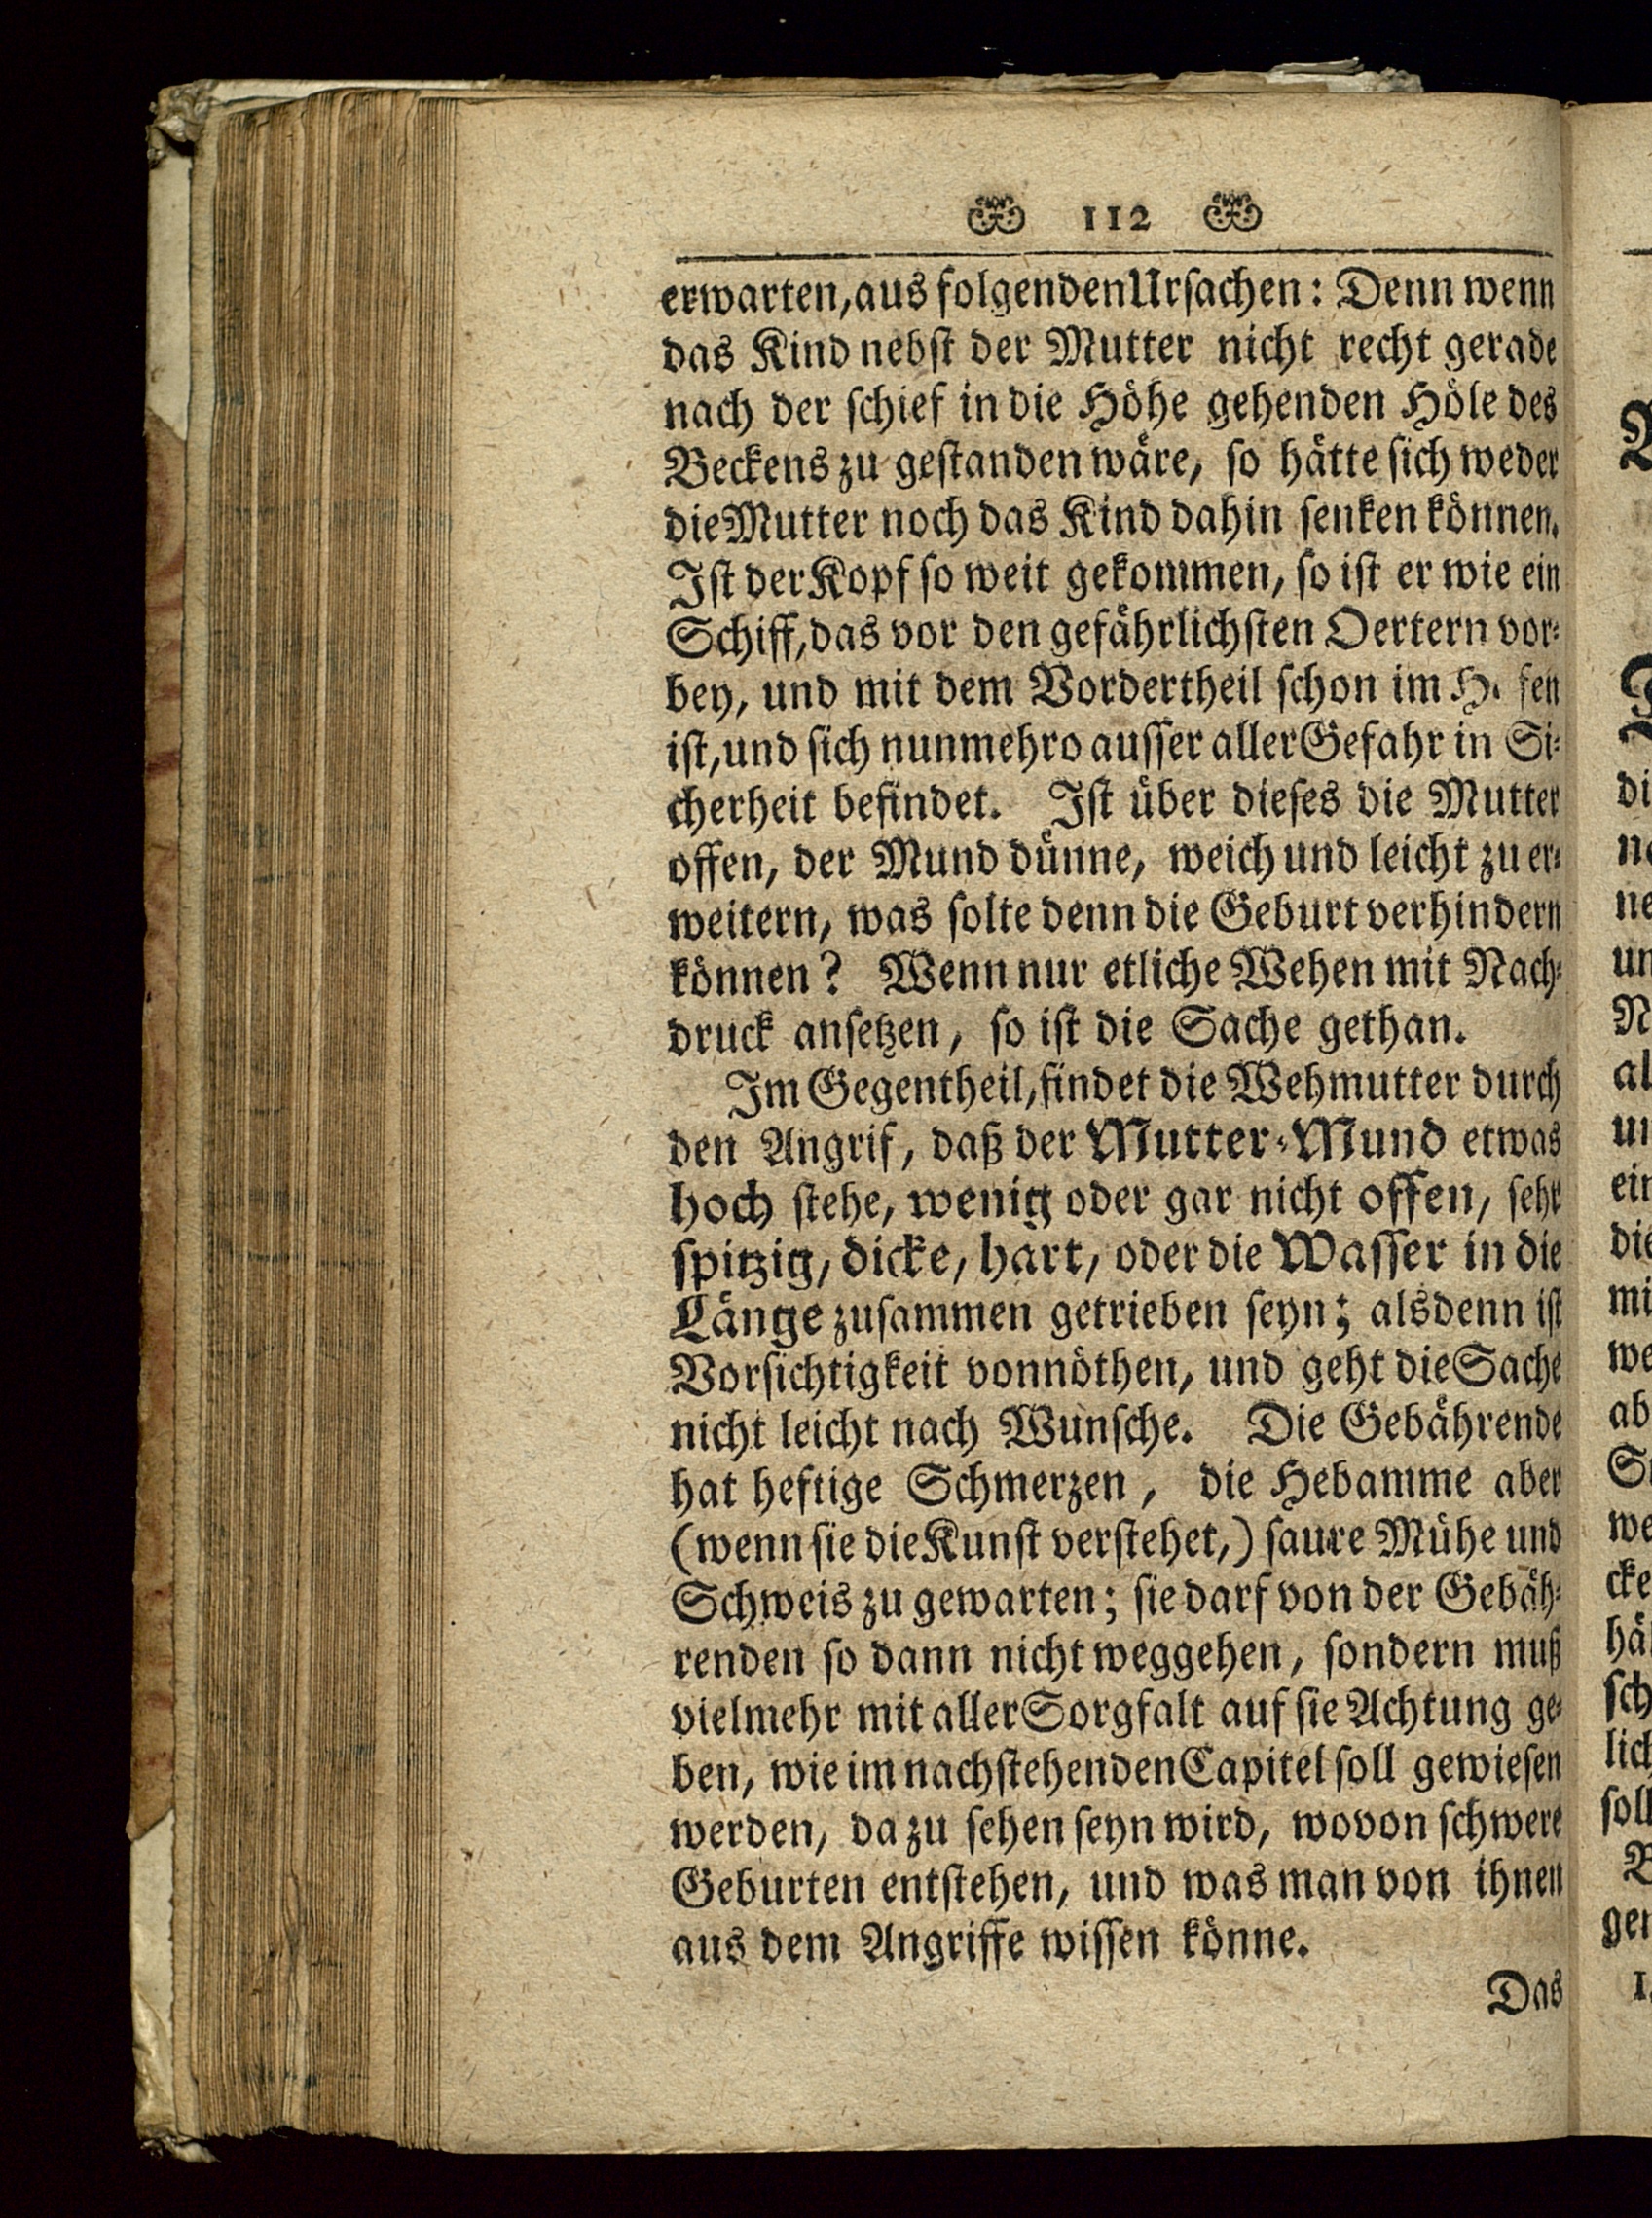 112
erwarten, aus folgenden Ursachen: Denn wenn
das Kind nebst der Mutter nicht recht gerade
nach der schief in die Höhe gehenden Höle des
Beckens zu gestanden wäre, so hätte sich weder
die Mutter noch das Kind dahin senken können.
Ist der Kopf so weit gekommen, so ist er wie ein
Schiff, das vor den gefährlichsten Oertern vor-
bey, und mit dem Vordertheil schon im H. fen
ist, und sich nunmehro ausser aller Gefahr in Si-
cherheit befindet. Ist über dieses die Mutter
offen, der Mund dünne, weich und leicht zu er-
weitern, was solte denn die Geburt verhindern
können? Wenn nur etliche Wehen mit Nach-
druck ansetzen, so ist die Sache gethan.
Im Gegentheil, findet die Wehmutter durch
den Angrif, daß der Mutter-Mund etwas
hoch stehe, wenig oder gar nicht offen, sehr
spitzig, dicke, hart, oder die Wasser in die
Länge zusammen getrieben seyn; alsdenn ist
Vorsichtigkeit vonnöthen, und geht die Sache
nicht leicht nach Wunsche. Die Gebährende
hat heftige Schmerzen, die Hebamme aber
(wenn sie die Kunst verstehet,) saure Mühe und
Schweis zu gewarten; sie darf von der Gebäh-
renden so dann nicht weggehen, sondern muß
vielmehr mit aller Sorgfalt auf sie Achtung ge-
ben, wie im nachstehenden Capitel soll gewiesen
werden, da zu sehen seyn wird, wovon schwere
Geburten entstehen, und was man von ihnen
aus dem Angriffe wissen könne.
Das